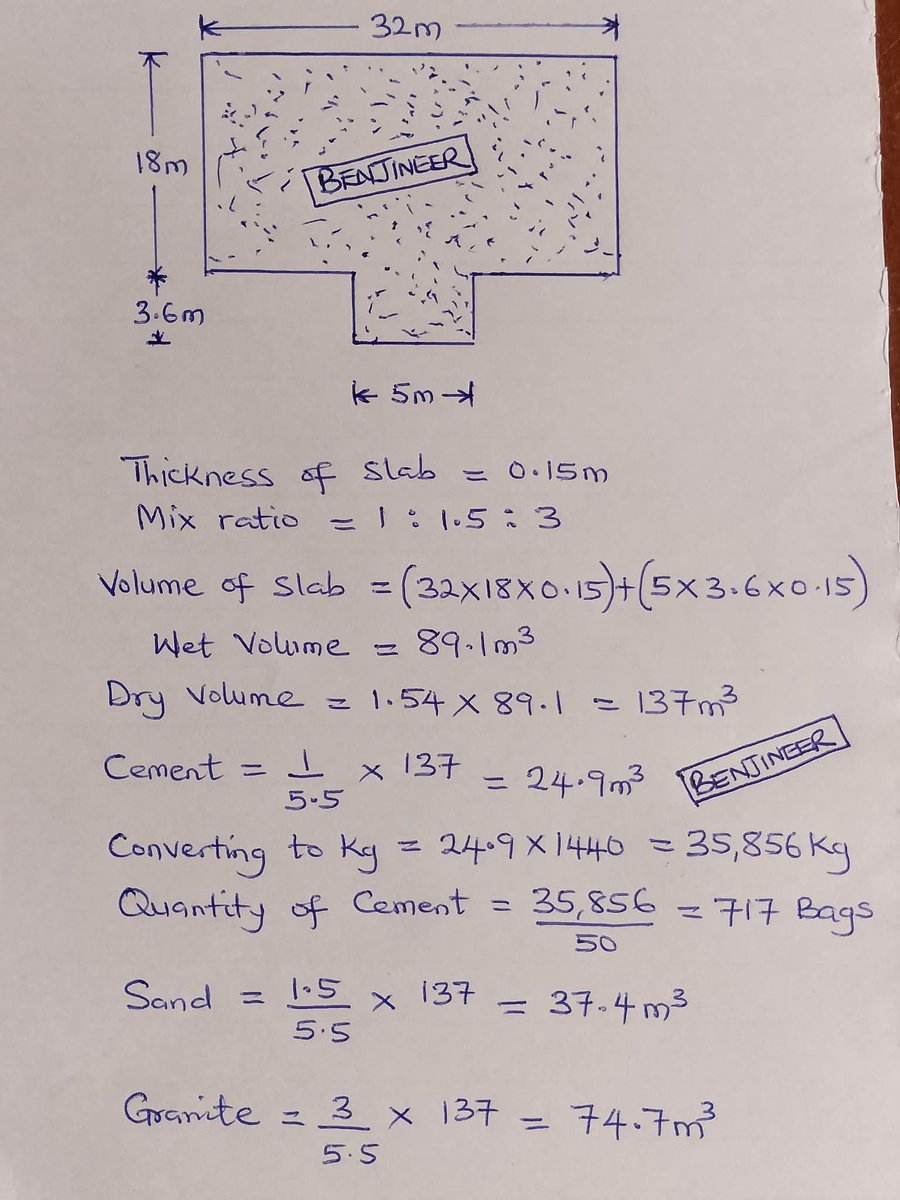 32m
18m
BENJINEER
3.6m
5m
Thickness of Slab = 0.15m
Mix ratio = 1 : 1.5 : 3
Volume of Slab = (32×18×0.15)+(5×3.6×0.15)
Wet Volume = 89.1m³
Dry Volume = 1.54 × 89.1 = 137m³
Cement = 1/5.5 × 137 = 24.9m³ BENJINEER
Converting to Kg = 24.9 × 1440 = 35,856 Kg
Quantity of Cement = 35,856/50 = 717 Bags
Sand = 1.5/5.5 × 137 = 37.4m³
Granite = 3/5.5 × 137 = 74.7m³